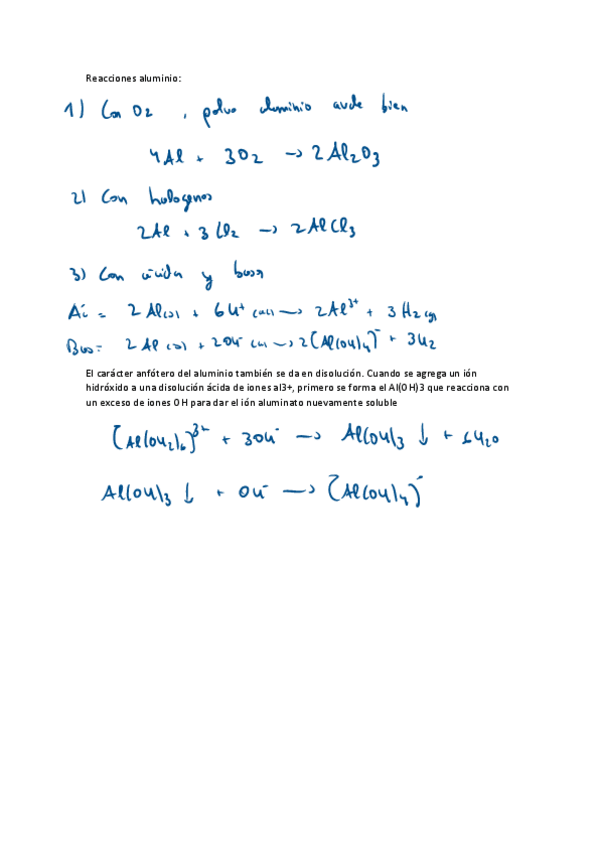 Reacciones aluminio:
1) Con O2 , polvo aluminio arde bien
4Al + 3O2 → 2Al2O3
2) Con halogenos
2Al + 3Cl2 → 2AlCl3
3) Con acidos y bases
Ac = 2Al(s) + 6H+ (ac) → 2Al3+ + 3H2 (g)
Bas = 2Al (s) + 2OH- (ac) → 2[Al(OH)4]- + 3H2
El carácter anfótero del aluminio también se da en disolución. Cuando se agrega un ión
hidróxido a una disolución ácida de iones al3+, primero se forma el Al(OH)3 que reacciona con
un exceso de iones OH para dar el ión aluminato nuevamente soluble
[Al(OH2)6]3+ + 3OH- → Al(OH)3 ↓ + 6H2O
Al(OH)3 ↓ + OH- → [Al(OH)4]-